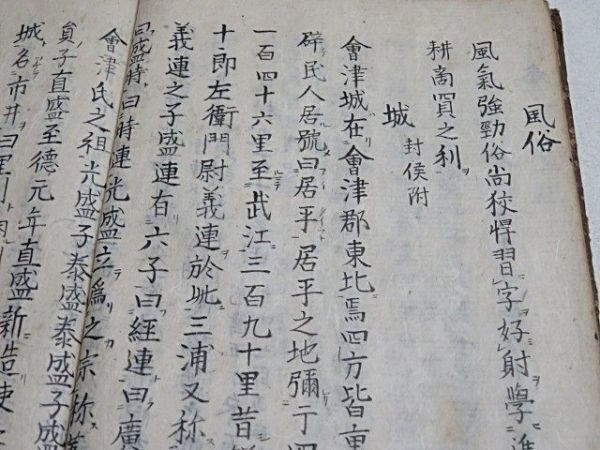 風俗
風氣強勁俗尚狹悍習字好射學進
耕商買之利
城 封侯附
會津城在會津郡東北焉四方皆重
辟民人居號曰居平居平之地彌亍四
一百四十六里至武江三百九十里昔
十郎左衞門尉義連於此三浦又称
義連之子盛連有六子曰經連曰廣
曰盛時曰時連光盛立爲之宗称
會津氏之祖光盛子泰盛泰盛子盛
貟子直盛至德元年直盛新造
城名市井曰里